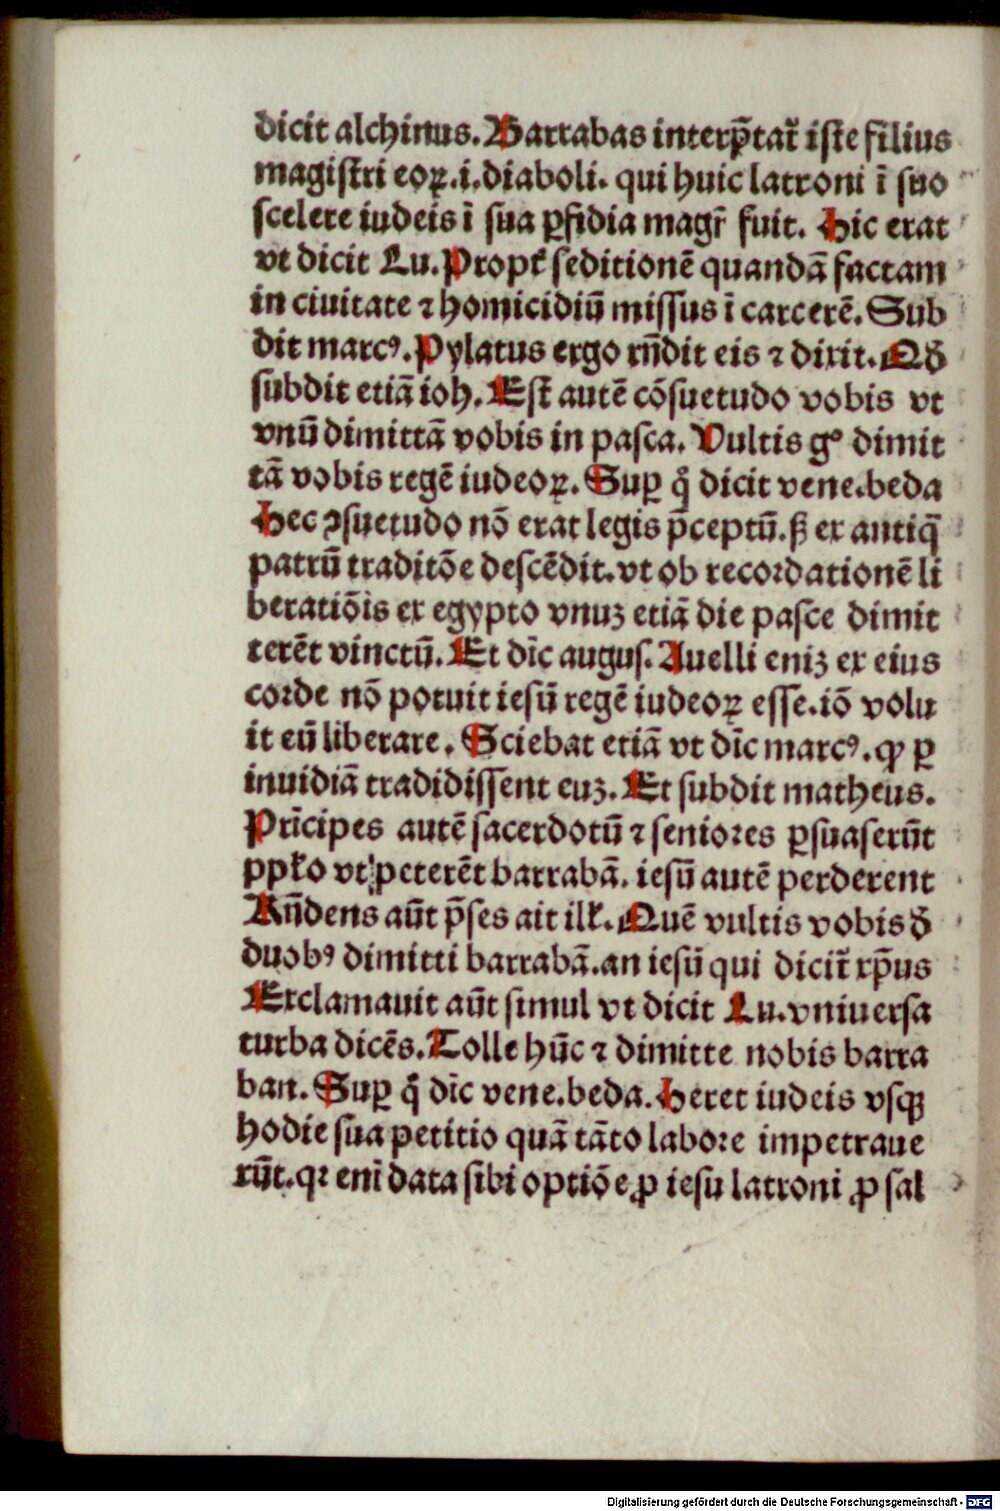 dicit alchinus. Barrabas interp̄tat̄ iste filius
magistri eoꝝ.i.diaboli. qui huic latroni ī suo
scelere iudeis ī sua ꝑfidia magr̄ fuit. Hic erat
vt dicit Lu. Propt̄ seditionē quandā factam
in ciuitate ⁊ homicidiū missus ī carcerē. Sub
dit marcꝰ. Pylatus ergo rn̄dit eis ⁊ dixit. Qđ
subdit etiā ioh. Est autē cōsuetudo vobis vt
vnū dimittā vobis in pasca. Vultis gº dimit
tā vobis regē iudeoꝝ. Suꝑ q̊ dicit vene.beda
Hec ꝯsuetudo nō erat legis p̄ceptū.ꝭ ex antiq̄
patrū traditōe descēdit.vt ob recordationē li
beratiōis ex egypto vnuꝫ etiā die pasce dimit
terēt vinctū. Et dīc augus. Auelli eniꝫ ex eius
corde nō potuit iesū regē iudeoꝝ esse.iō volu
it eū liberare. Sciebat etiā vt dīc marcꝰ.ꝙ ꝑ
inuidiā tradidissent euꝫ. Et subdit matheus.
Prīcipes autē sacerdotū ⁊ seniores ꝑsuaserūt
ppło vt peterēt barrabā. iesū autē perderent
Rn̄dens aūt p̄ses ait ill̵. Quē vultis vobis đ
duobꝰ dimitti barrabā.an iesū qui dicit̄ xp̄us
Exclamauit aūt simul vt dicit Lu.vniuersa
turba dicēs. Tolle hūc ⁊ dimitte nobis barra
ban. Suꝑ q̊ dīc vene.beda. Heret iudeis vsqꝫ
hodie sua petitio quā tāto labore impetraue
rūt.qꝛ enī data sibi optiōe ꝓ iesu latroni ꝓ sal
Digitalisierung gefördert durch die Deutsche Forschungsgemeinschaft - DFG